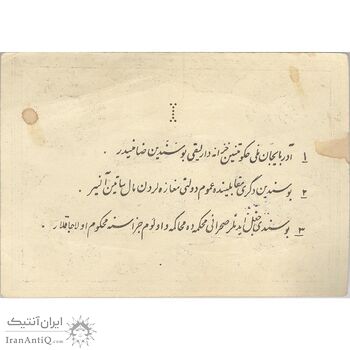 ۱ آذربایجان ملی حکومتینین خزانه دارلیقی بو سندین ضامنیدیر.
۲ بو سندین دگری مقابلینده عموم دولتی مغازه لردن مال ساتین آلینیر.
۳ بو سندی جعل ایدنلر صحرائی محکمه ده محاکمه و اولوم جزاسنه محکوم اولاجاقلار.
ایران آنتیک
IranAntiQ.com